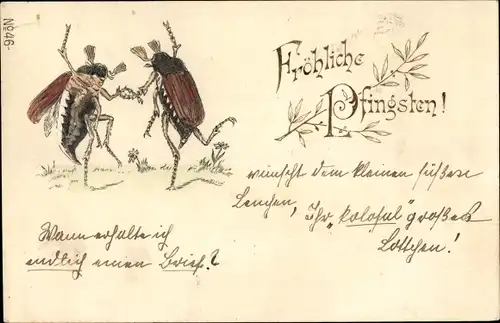 No 46-
Fröhliche
Pfingsten!
wünscht dem kleinen süßen
Lenchen, Ihr „kolosal" großes
Lottchen!
Wann erhalte ich
endlich einen Brief?